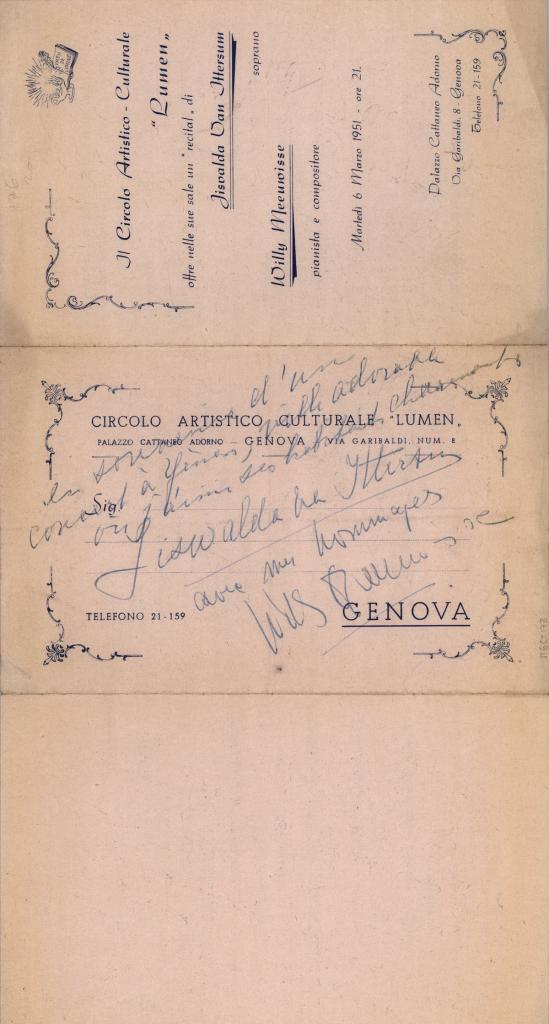 Il Circolo Artistico - Culturale
"Lumen"
offre nelle sue sale un "recital" di
Jiswalda Van Ittersum
soprano
Willy Meeuwisse
pianista e compositore
Martedì 6 Marzo 1951 - ore 21.
Palazzo Cattaneo Adorno
Via Garibaldi, 8 - Genova
Telefono 21-159
CIRCOLO ARTISTICO CULTURALE "LUMEN"
PALAZZO CATTANEO ADORNO - GENOVA - VIA GARIBALDI, NUM. 8
Sig.
TELEFONO 21-159
GENOVA
en souvenir d'un
concert à Gênes, ville adorable
où j'aime ses habitants charmants
Jiswalda van Ittersum
avec mes hommages
Willy Meeuwisse